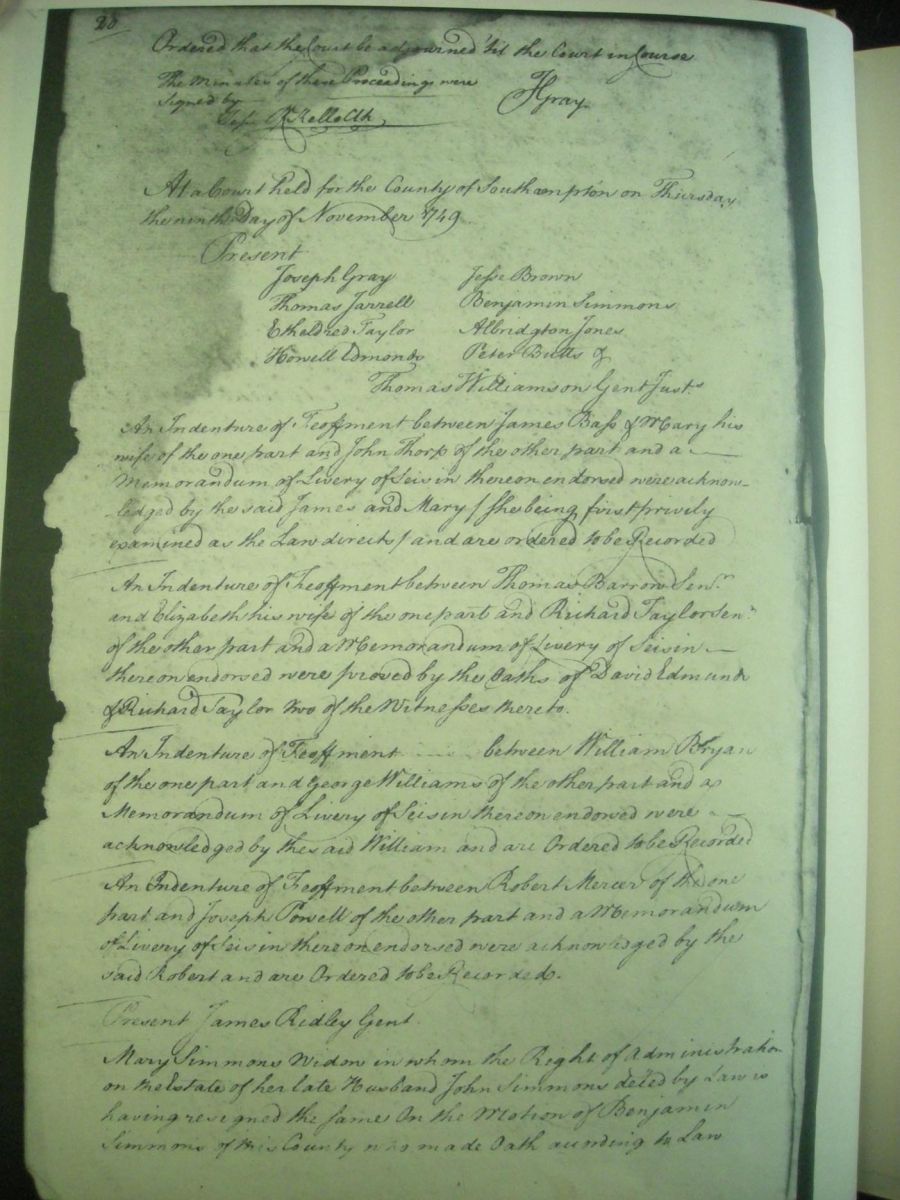 20
Ordered that the Court be adjourned 'til the Court in Course
The Minutes of these Proceedings were
Signed by
JGray
Test R Kello Clk
At a Court held for the County of Southampton on Thursday
the ninth Day of November 1749
Present
Joseph Gray Jesse Brown
Thomas Jarrell Benjamin Simmons
Etheldred Taylor Albridgton Jones
Howell Edmonds Peter Butts &
Thomas Williamson Gent Justs
An Indenture of Feoffment between James Bass & Mary his
wife of the one part and John Thorp of the other part and a
Memorandum of Livery of Seisin thereon endorsed were acknow-
ledged by the said James and Mary / she being first privily
examined as the Law directs / and are ordered to be Recorded
An Indenture of Feoffment between Thomas Barrow Senr
and Elizabeth his wife of the one part and Richard Taylor Senr
of the other part and a Memorandum of Livery of Seisin
thereon endorsed were proved by the Oaths of David Edmunds
& Richard Taylor two of the Witnesses thereto.
An Indenture of Feoffment between William Bryan
of the one part and George Williams of the other part and a
Memorandum of Livery of Seisin thereon endorsed were
acknowledged by the said William and are Ordered to be Recorded
An Indenture of Feoffment between Robert Mercer of the one
part and Joseph Powell of the other part and a Memorandum
of Livery of Seisin thereon endorsed were acknowledged by the
said Robert and are Ordered to be Recorded.
Present James Ridley Gent.
Mary Simmons Widow in whom the Right of Administration
on the Estate of her late Husband John Simmons deced by Law is
having resigned the same On the Motion of Benjamin
Simmons of this County who made Oath according to Law